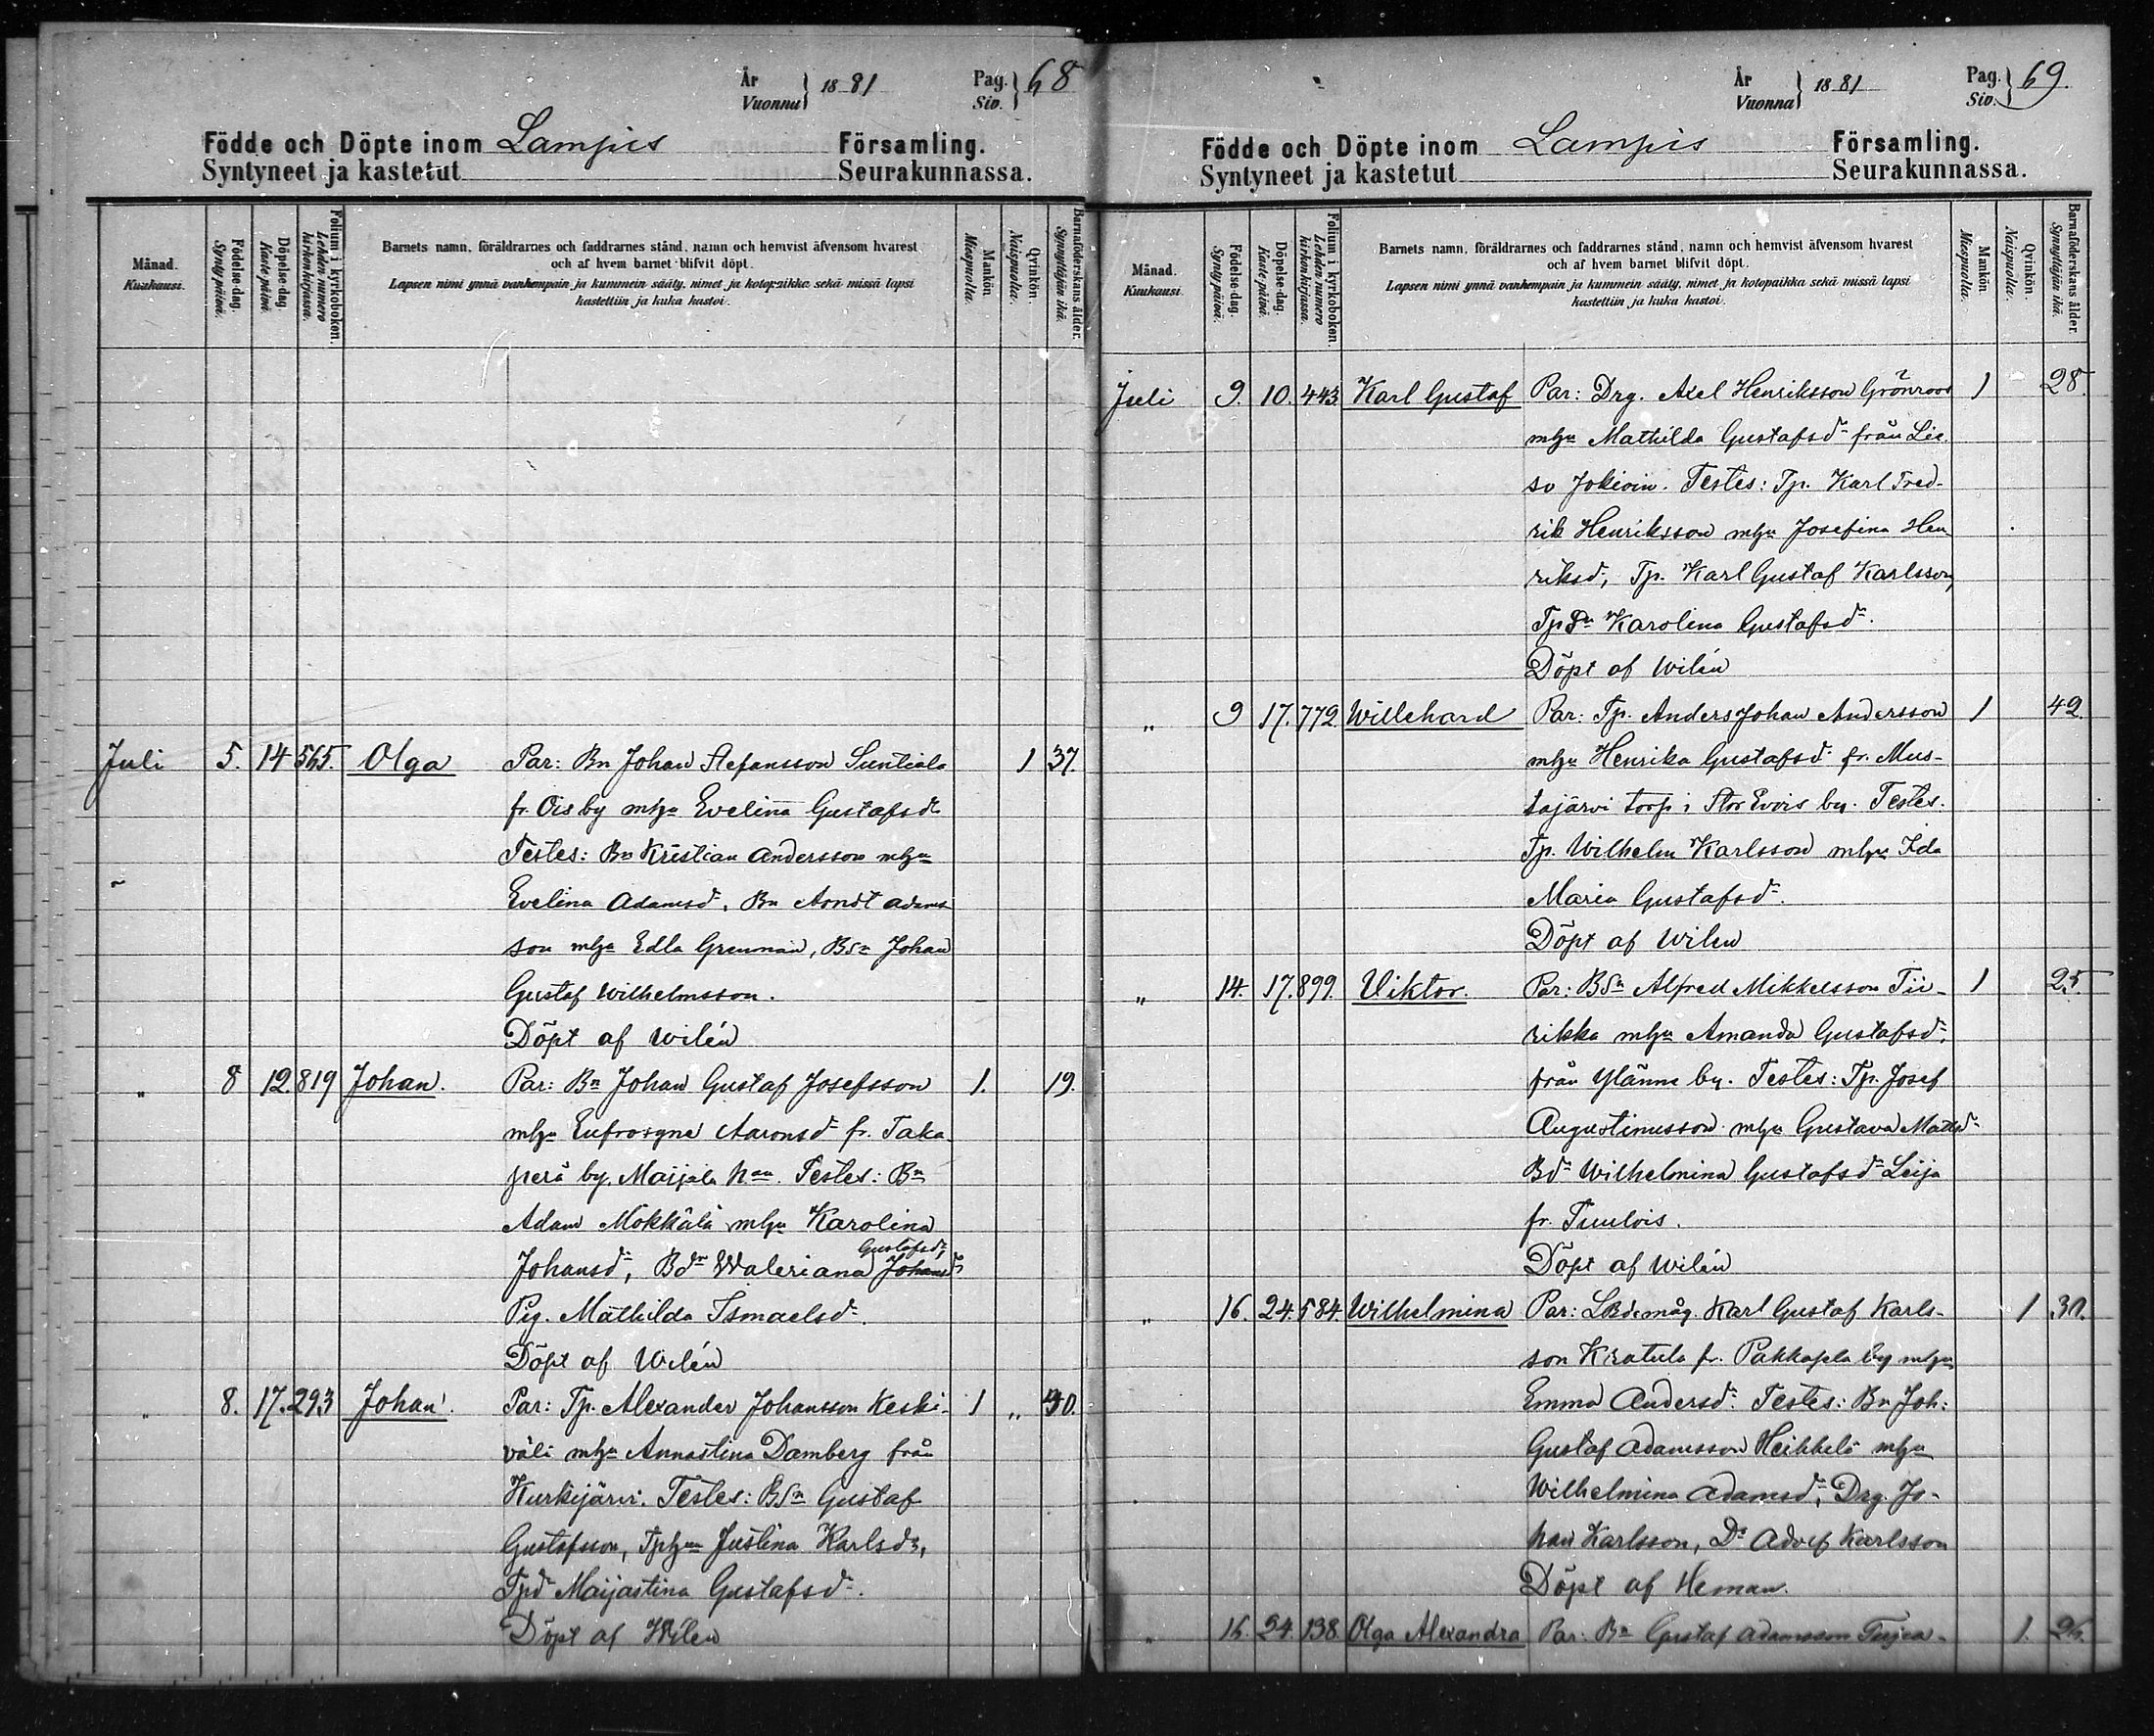 År
Vuonna } 1881
Pag.
Siv. } 68
Födde och Döpte inom Lampis Församling.
Syntyneet ja kastetut Seurakunnassa.
Månad.
Kuukausi.
Födelse-dag.
Syntypäivä.
Döpelse-dag.
Kastepäivä.
Folium i kyrkoboken.
Lehden numero
kirkonkirjassa.
Barnets namn, föräldrarnes och faddrarnes stånd, namn och hemvist äfvensom hvarest
och af hvem barnet blifvit döpt.
Lapsen nimi ynnä vanhempain ja kummein sääty, nimet ja kotopaikka sekä missä lapsi
kastettiin ja kuka kastoi.
Mankön.
Miespuolia.
Qvinkön.
Naispuolia.
Barnaföderskans ålder.
Synnyttäjän ikä.
Juli 5. 14 565. Olga Par: Bn Johan Stefansson Suntiala 1 37.
fr. Ois by mhu Evelina Gustafsdr
Testes: Bn Kristian Andersson mhu
Evelina Adamsdr, Bn Arndt Adams
son mhu Edla Grenman, BSn Johan
Gustaf Wilhelmsson.
Döpt af Wilén
„ 8 12. 819 Johan. Par: Bn Johan Gustaf Josefsson 1. 19.
mhu Eufrosyne Aaronsdr fr. Taka
perä by. Maijala han. Testes: Bn
Adam Mökkälä mhu Karolina
Gustafsdr,
Johansdr, Bdr Waleriana Johansdr
Pig. Mathilda Ismaelsdr.
Döpt af Wilén
„ 8. 17. 293 Johan. Par: Tp. Alexander Johansson Keski- 1 „ 40.
väli mhu Annastina Damberg från
Kurkijärvi. Testes: BSn Gustaf
Gustafsson, Tphu Justina Karlsdr,
Tpdr Maijastina Gustafsdr.
Döpt af Wilén
År
Vuonna } 1881
Pag.
Siv. } 69.
Födde och Döpte inom Lampis Församling.
Syntyneet ja kastetut Seurakunnassa.
Månad.
Kuukausi.
Födelse-dag.
Syntypäivä.
Döpelse-dag.
Kastepäivä.
Folium i kyrkoboken.
Lehden numero
kirkonkirjassa.
Barnets namn, föräldrarnes och faddrarnes stånd, namn och hemvist äfvensom hvarest
och af hvem barnet blifvit döpt.
Lapsen nimi ynnä vanhempain ja kummein sääty, nimet ja kotopaikka sekä missä lapsi
kastettiin ja kuka kastoi.
Mankön.
Miespuolia.
Qvinkön.
Naispuolia.
Barnaföderskans ålder.
Synnyttäjän ikä.
Juli 9. 10. 443. Karl Gustaf Par: Drg. Axel Henriksson Grönroos 1 28.
mhu Mathilda Gustafsdr från Lie
so Jokioin. Testes: Tp. Karl Fred-
rik Henriksson mhu Josefina Hen
riksdr, Tp. Karl Gustaf Karlsson,
Tpdr Karolina Gustafsdr.
Döpt af Wilén
„ 9 17. 772. Willehard Par: Tp. Anders Johan Andersson 1 42.
mhu Henrika Gustafsdr fr. Mus-
tajärvi torp i Stor Evois by. Testes.
Tp. Wilhelm Karlsson mhu Ida
Maria Gustafsdr.
Döpt af Wilén
„ 14. 17. 899. Viktor. Par: BSn Alfred Mikkelsson Tii- 1 25.
rikka mhu Amanda Gustafsdr,
från Ylänne by. Testes: Tp. Josef
Augustinusson mhu Gustava Mattsdr
Bdr Wilhelmina Gustafsdr Leija
fr. Tuulois.
Döpt af Wilén
„ 16. 24. 584. Wilhelmina Par: LBdemåg. Karl Gustaf Karls- 1 31.
son Kratula fr. Pakkapla by mhu
Emma Andersdr. Testes: Bn Joh:
Gustaf Adamsson Heikkilä mhu
Wilhelmina Adamsdr, Drg. Jo-
han Karlsson, Do Adolf Karlsson
Döpt af Heman.
„ 16. 24. 138 Olga Alexandra Par: Bn Gustaf Adamsson 1. 26.